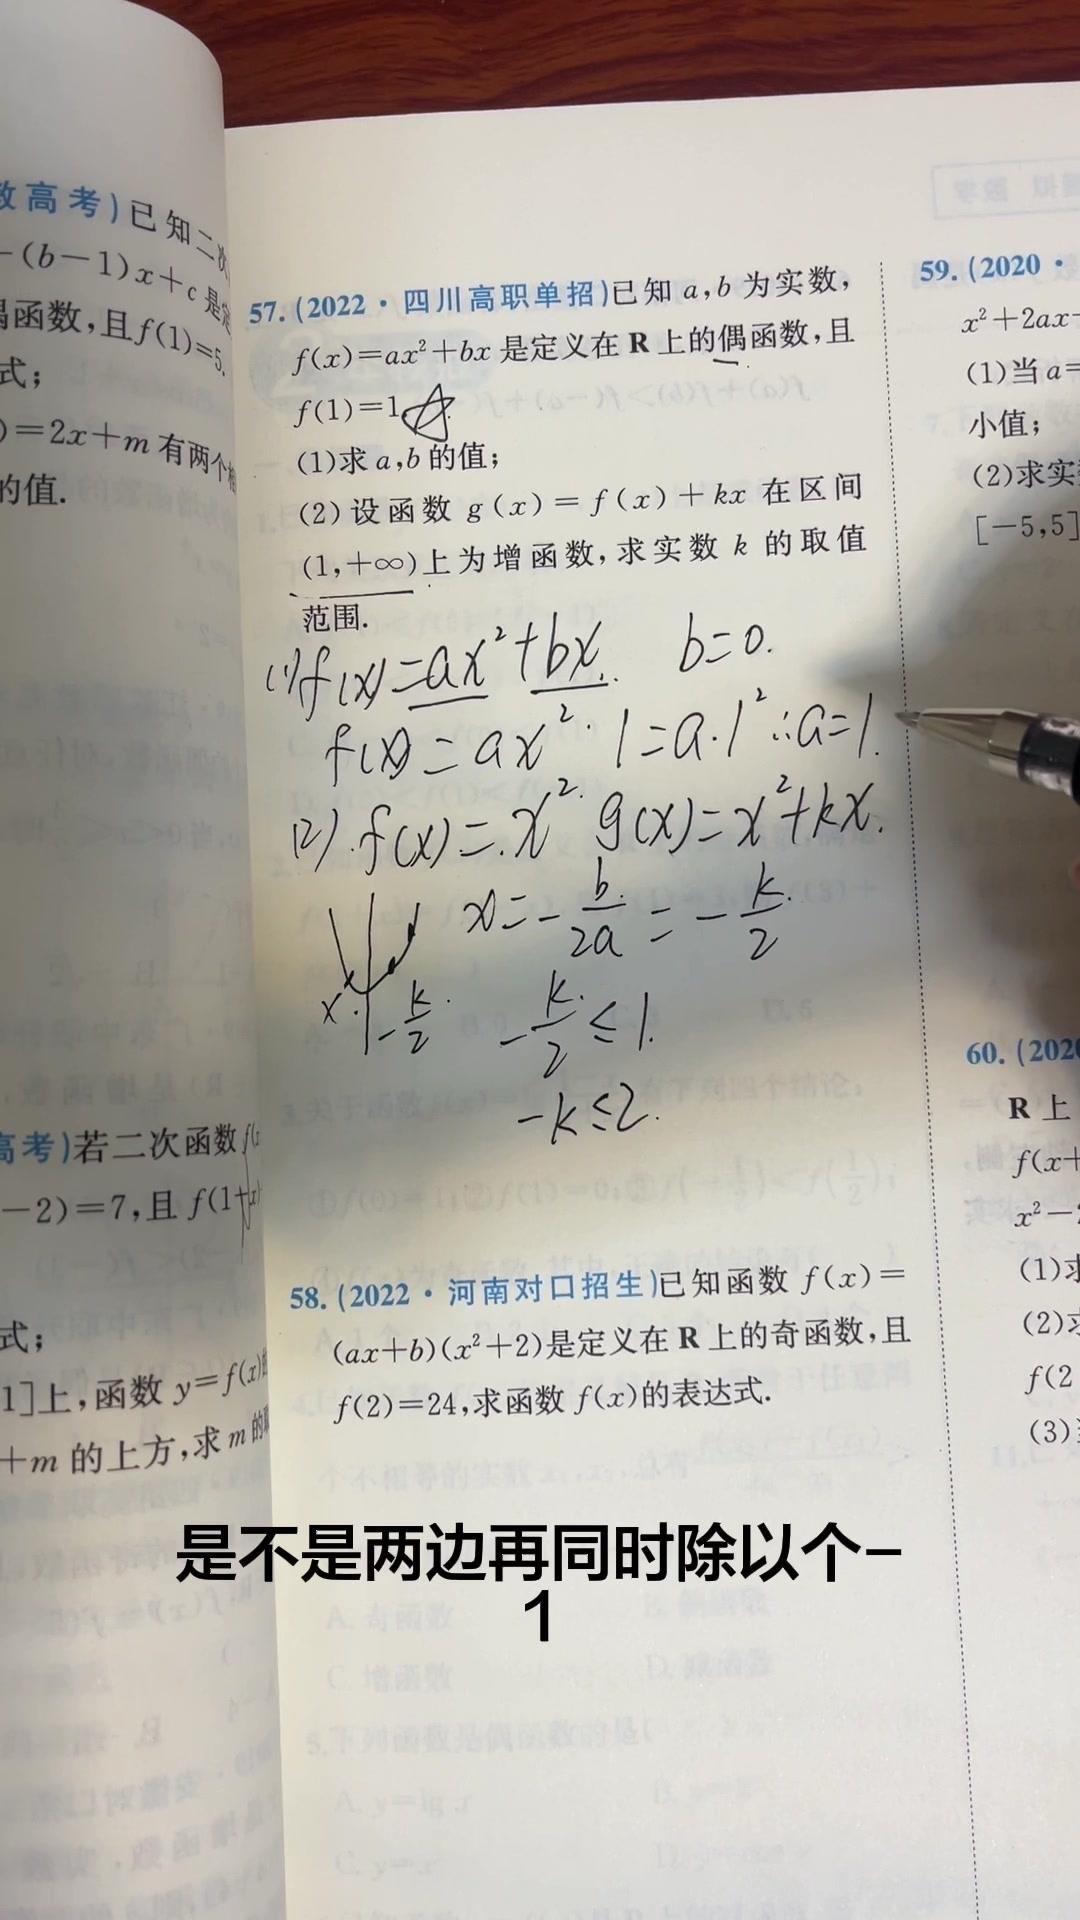 数高考)已知二次
-(b-1)x+c是定
偶函数,且f(1)=5.
式;
)=2x+m有两个相
的值.
高考)若二次函数f(
-2)=7,且f(1+x)
式;
1]上,函数y=f(x)
+m的上方,求m的
57.(2022·四川高职单招)已知a,b为实数,
f(x)=ax²+bx是定义在R上的偶函数,且
f(1)=1
(1)求a,b的值;
(2)设函数g(x)=f(x)+kx在区间
(1,+∞)上为增函数,求实数k的取值
范围.
(1)f(x)=ax²+bx. b=0.
f(x)=ax². 1=a·1² ∴a=1.
(2).f(x)=x². g(x)=x²+kx.
x=-b/2a=-k/2
x. -k/2 -k/2≤1.
-k≤2.
58.(2022·河南对口招生)已知函数f(x)=
(ax+b)(x²+2)是定义在R上的奇函数,且
f(2)=24,求函数f(x)的表达式.
59.(2020·
x²+2ax-
(1)当a=
小值;
(2)求实
[-5,5]
60.(2020
R上
f(x+
x²-
(1)求
(2)求
f(2
(3)
是不是两边再同时除以个-
1